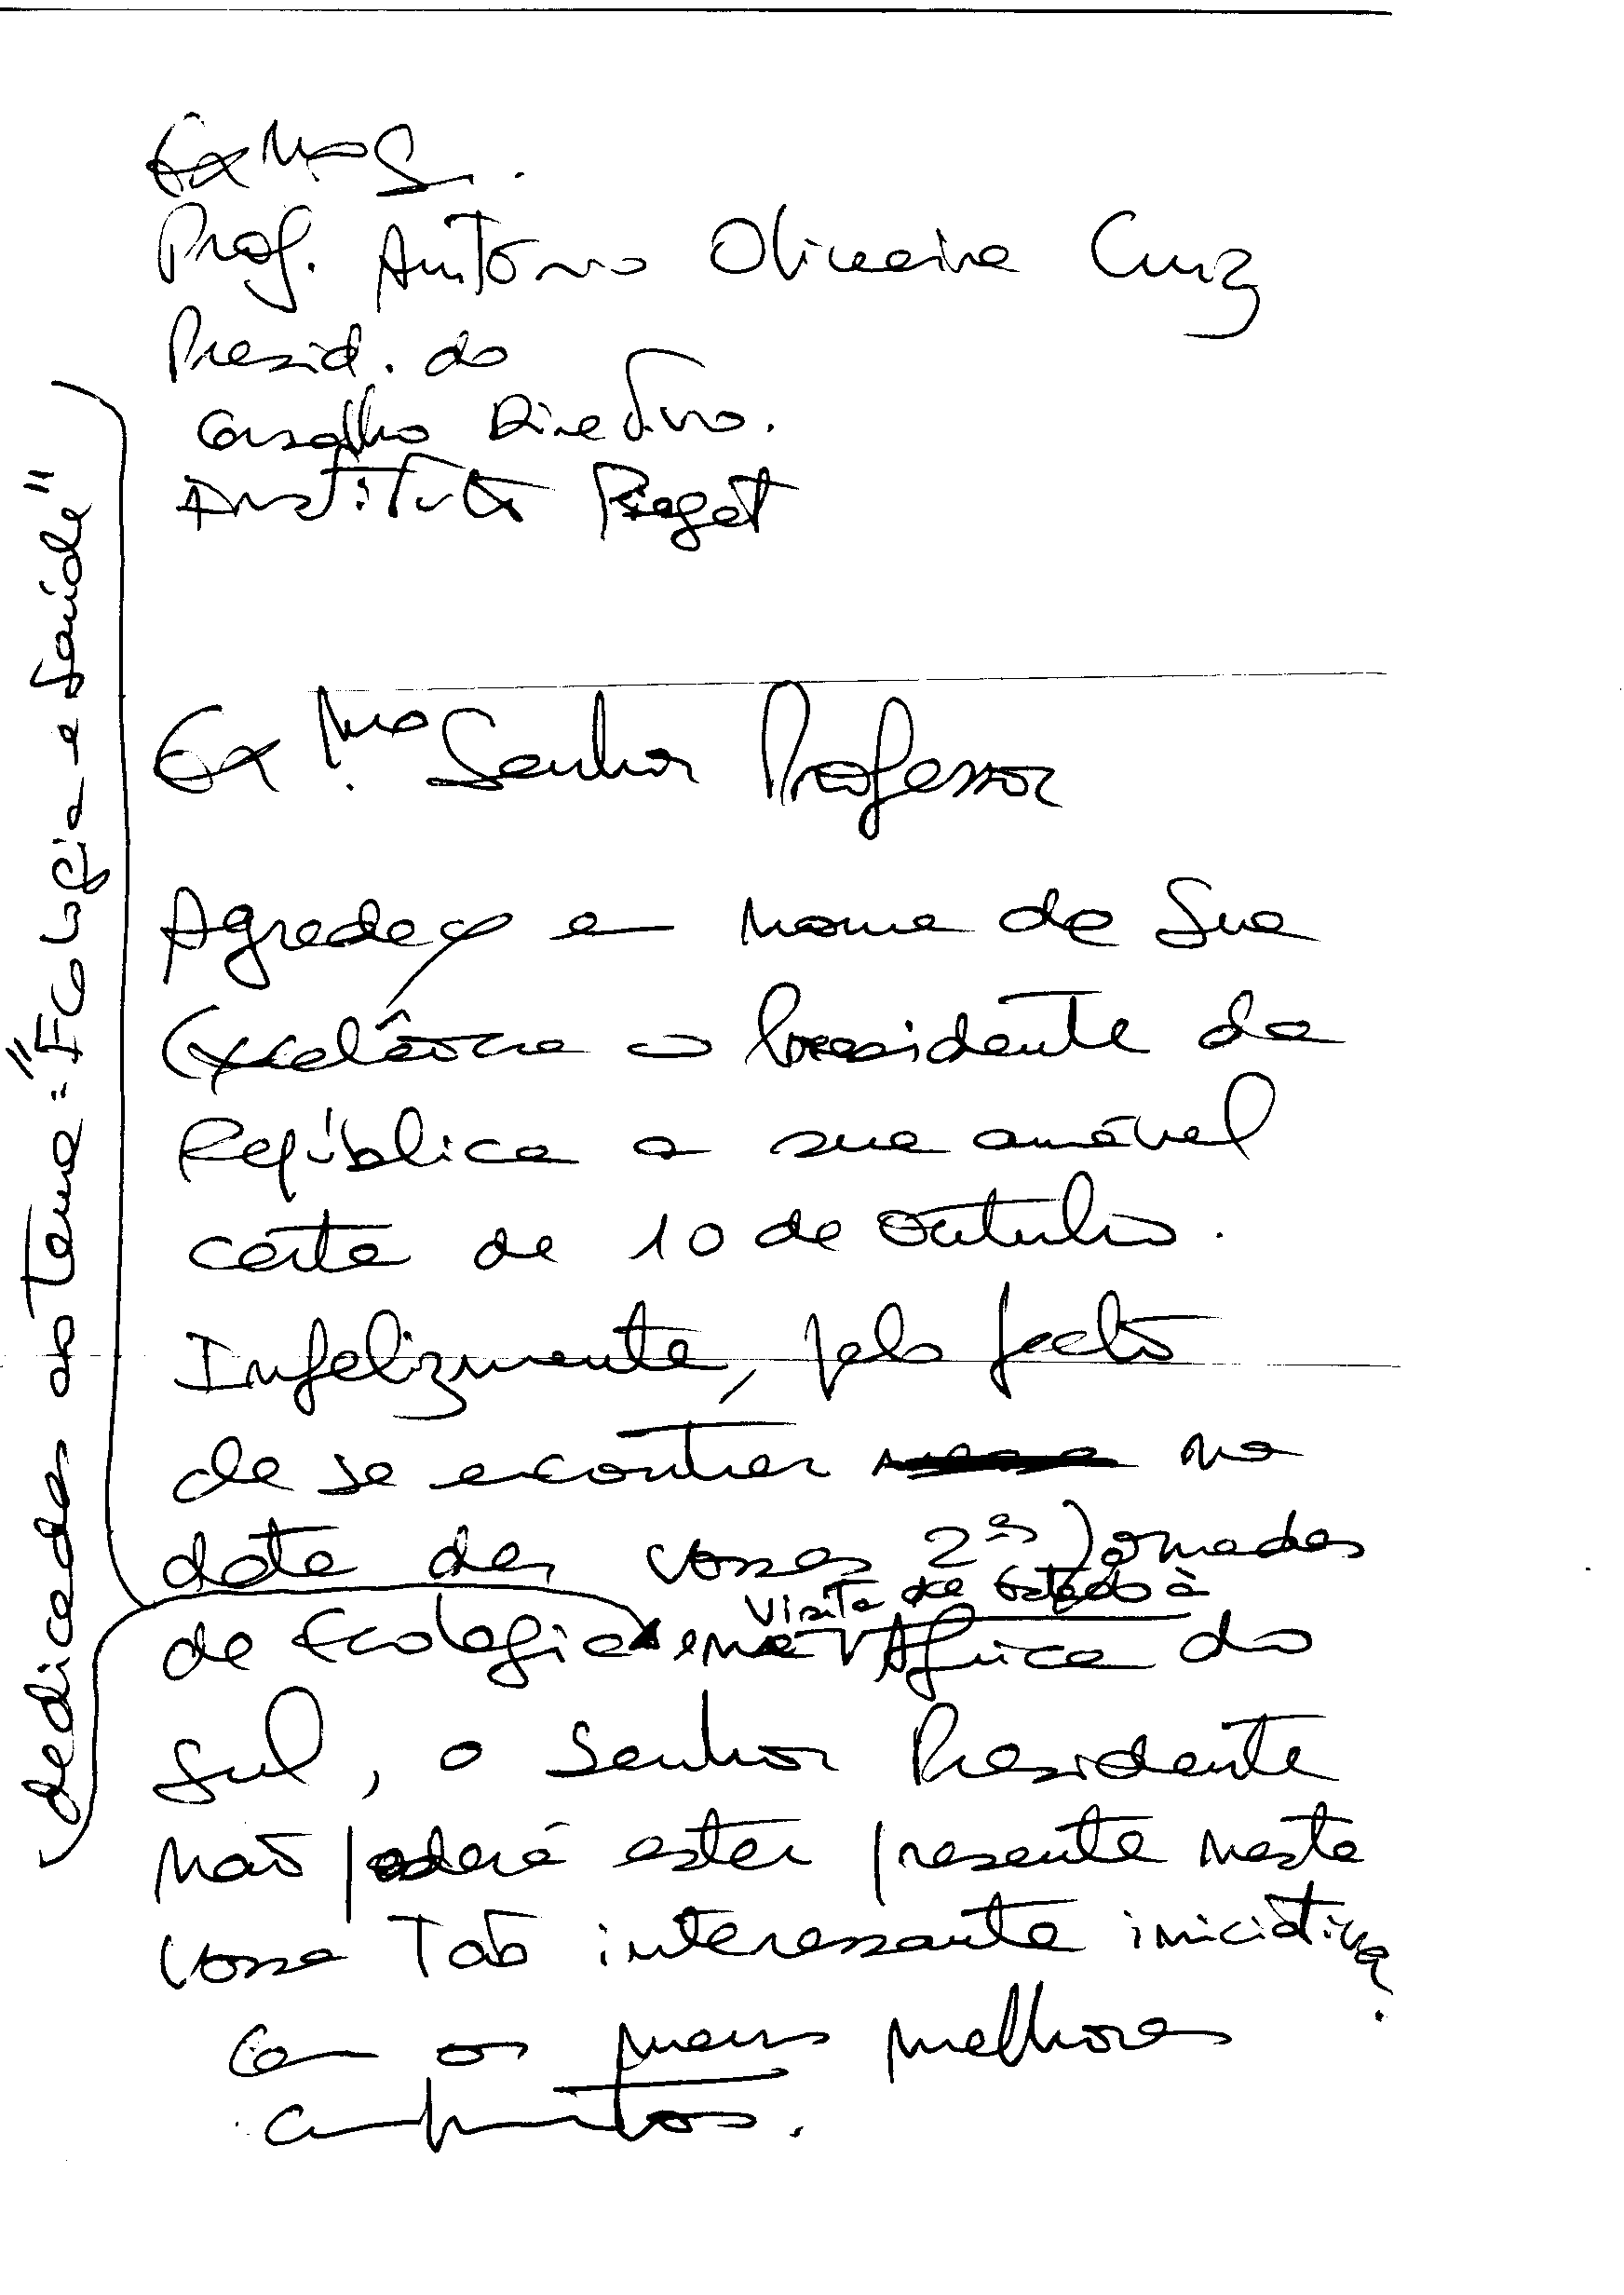 Exmo S.
Prof. António Oliveira Cruz
Presid. do
Conselho Directivo.
Instituto Piaget
Exmo Senhor Professor
Agradeço em nome de Sua
Excelência o Presidente da
República a sua amável
carta de 10 de outubro.
Infelizmente, pelo facto
de se encontrar na
data das vossas 2as Jornadas
visita de Estado à
de Ecologia em África do
Sul, o Senhor Presidente
não poderá estar presente nesta
vossa tão interessante iniciativa.
Com os meus melhores
cumprimentos.
dedicadas ao tema: "Ecologia e Saúde"